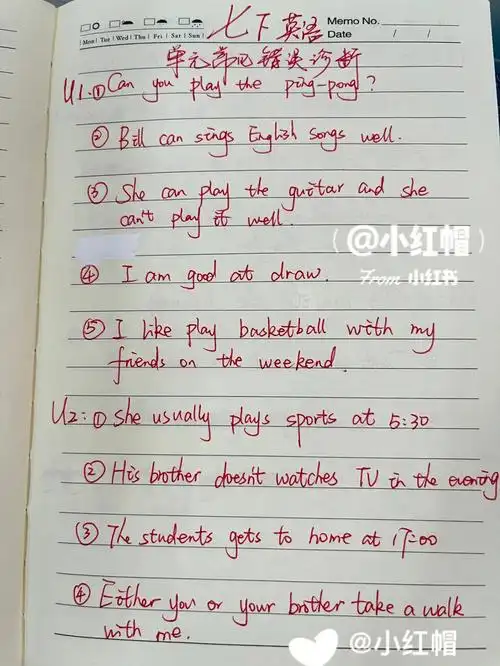 七下英语
Memo No.
Mon Tue Wed Thu Fri Sat Sun
Date / /
单元常见错误诊断
U1: ① Can you play the ping-pong?
② Bill can sings English songs well.
③ She can play the guitar and she
can't play it well.
(@小红帽)
From 小红书
④ I am good at draw.
⑤ I like play basketball with my
friends on the weekend.
U2: ① She usually plays sports at 5:30
② His brother doesn't watches TV in the evening
③ The students gets to home at 17:00
④ Either you or your brother take a walk
with me.
@小红帽